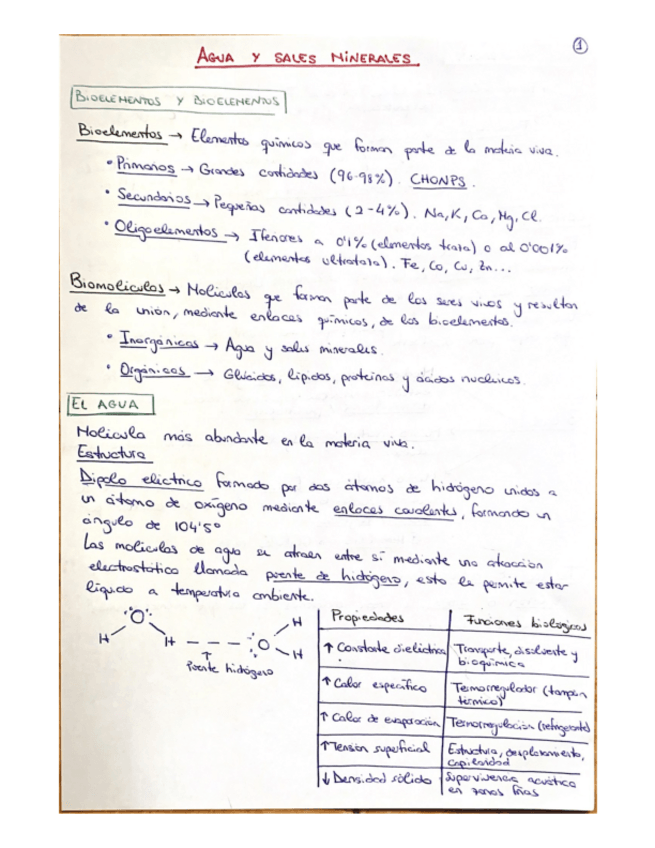 1
AGUA Y SALES MINERALES.
BIOELEMENTOS Y BIOELEMENTOS
Bioelementos → Elementos químicos que forman parte de la materia viva.
• Primarios → Grandes cantidades (96-98%). CHONPS.
• Secundarios → Pequeñas cantidades (2-4%). Na, K, Ca, Mg, Cl.
• Oligoelementos → Ifenores a 0'1% (elementos traza) o al 0'001%
(elementos ultratraza). Fe, Co, Cu, Zn...
Biomoléculas → Moléculas que forman parte de los seres vivos y resultan
de la unión, mediante enlaces químicos, de los bioelementos.
• Inorgánicas → Agua y sales minerales.
• Orgánicas → Glúcidos, lípidos, proteínas y ácidos nucleicos.
EL AGUA
Molécula más abundante en la materia viva.
Estructura
Dipolo eléctrico formado por dos átomos de hidrógeno unidos a
un átomo de oxígeno mediante enlaces covalentes, formando un
ángulo de 104'5°
Las moléculas de agua se atraen entre sí mediante una atracción
electrostática llamada puente de hidrógeno, esto le permite estar
líquida a temperatura ambiente.
O
H H O H
H
Puente hidrógeno
Propiedades Funciones biológicas
↑ Constante dieléctrica Transporte, disolvente y
bioquímica
↑ Calor específico Termorregulador (tampón
térmico)
↑ Calor de evaporación Termorregulación (refrigerante)
↑ Tensión superficial Estructura, desplazamiento,
capilaridad
↓ Densidad sólido Supervivencia acuática
en zonas frías